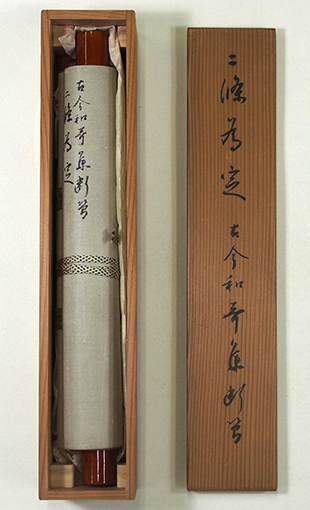 二條為定 古今和哥集断簡
古今和哥集断簡
二條為定